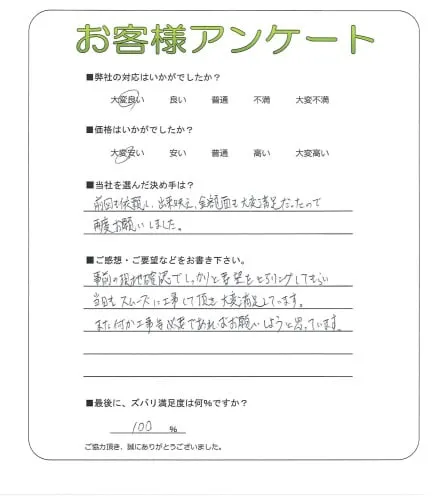 お客様アンケート
■弊社の対応はいかがでしたか？
大変良い 良い 普通 不満 大変不満
■価格はいかがでしたか？
大変安い 安い 普通 高い 大変高い
■当社を選んだ決め手は？
前回も依頼し、出来映え、金額面も大変満足だったので
再度お願いしました。
■ご感想・ご要望などをお書き下さい。
事前の現地確認でしっかりと要望をヒヤリングしてもらい
当日もスムーズに工事して頂き大変満足しています。
また何か工事等必要であればお願いしようと思っています。
■最後に、ズバリ満足度は何%ですか？
100 %
ご協力頂き、誠にありがとうございました。